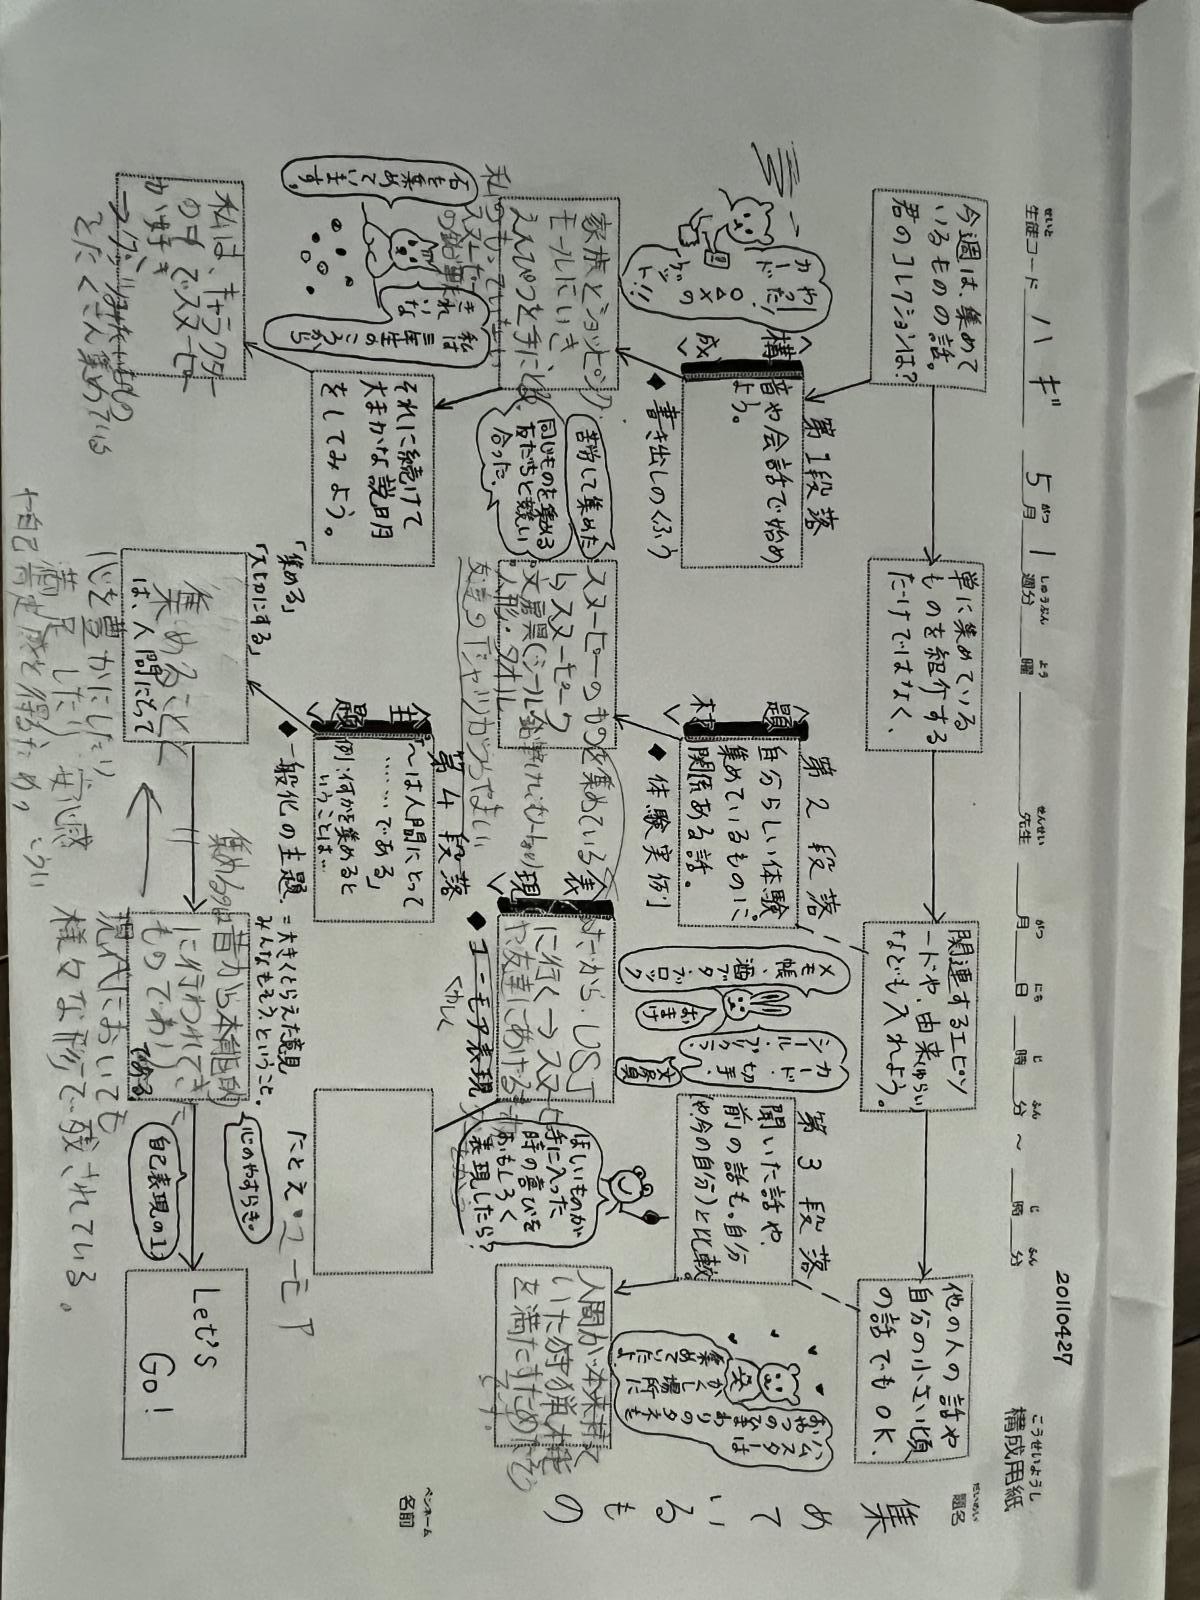 20110427
こうせいようし
構成用紙
せいと
生徒コード ハ ギ
5月 1週分 曜
がつ しゅうぶん よう
先生
せんせい
月 日 時 分 ～ 時 分
がつ にち じ ふん じ ふん
だいめい
題名
集めているもの
ペンネーム
名前
今週は、集めて
いるものの話。
君のコレクションは?
単に集めている
ものを紹介する
だけではなく、
関連するエピソ
ードや、由来(ゆらい)
なども入れよう。
他の人の話や
自分の小さい頃
の話でもOK、
やったー!
カード
○△×の
ゲッ
ト!!
〈構成〉
第1段落
音や会話で始め
よう。
◆書き出しのくふう
〈題材〉
第2段落
自分らしい体験。
集めているものに
関係ある話。
◆体験実例
メモ帳、酒
ブタ、ブロック
おまけ
カード・
シール・切手、
文房具
第3段落
聞いた話や、
前の話も。自分
(や今の自分)と比較。
ハムスターは
おやつのひま
わりのタネを
かくし場所に
集めていたよ。
家族とショッピング
モールにいき
えんぴつを手にとる。
私のもっていない
スヌーピー
の鉛筆だ
苦労して集めた
同じものを集める
友だちと競い
合った。
スヌーピーのものを集めている
文房具(シール
人形・タオル
〈表現〉
だから、USJ
に行く→スヌーピー
や友達にあげる
◆ユーモア表現
ほしいものが
手に入った
時の喜びを
おもしろく
表現したら?
人間が本来持って
いた狩猟本能
を満たすためだろう
石を集めています。
私は
三年生のころから
きれいな
それに続けて
大まかな説明
をしてみよう。
〈主題〉
第4段落
「～は人間にとって
……である」
例:何かを集めると
いうことは…
◆一般化の主題
=大きくとらえた意見
みんなもそう、ということ。
たとえ・ユーモア
私は、キャラクター
の中でスヌーピー
が好き
たくさん集めている
「集める」
「大切にする」
集めること
は、人間にとって
心を豊かにしたり
満足した
集めるのは昔から本能的
に行われてきた
ものであり
である
現代においても
様々な形で残されている。
心のやすらぎ。
自己表現の1つ
Let's
Go!